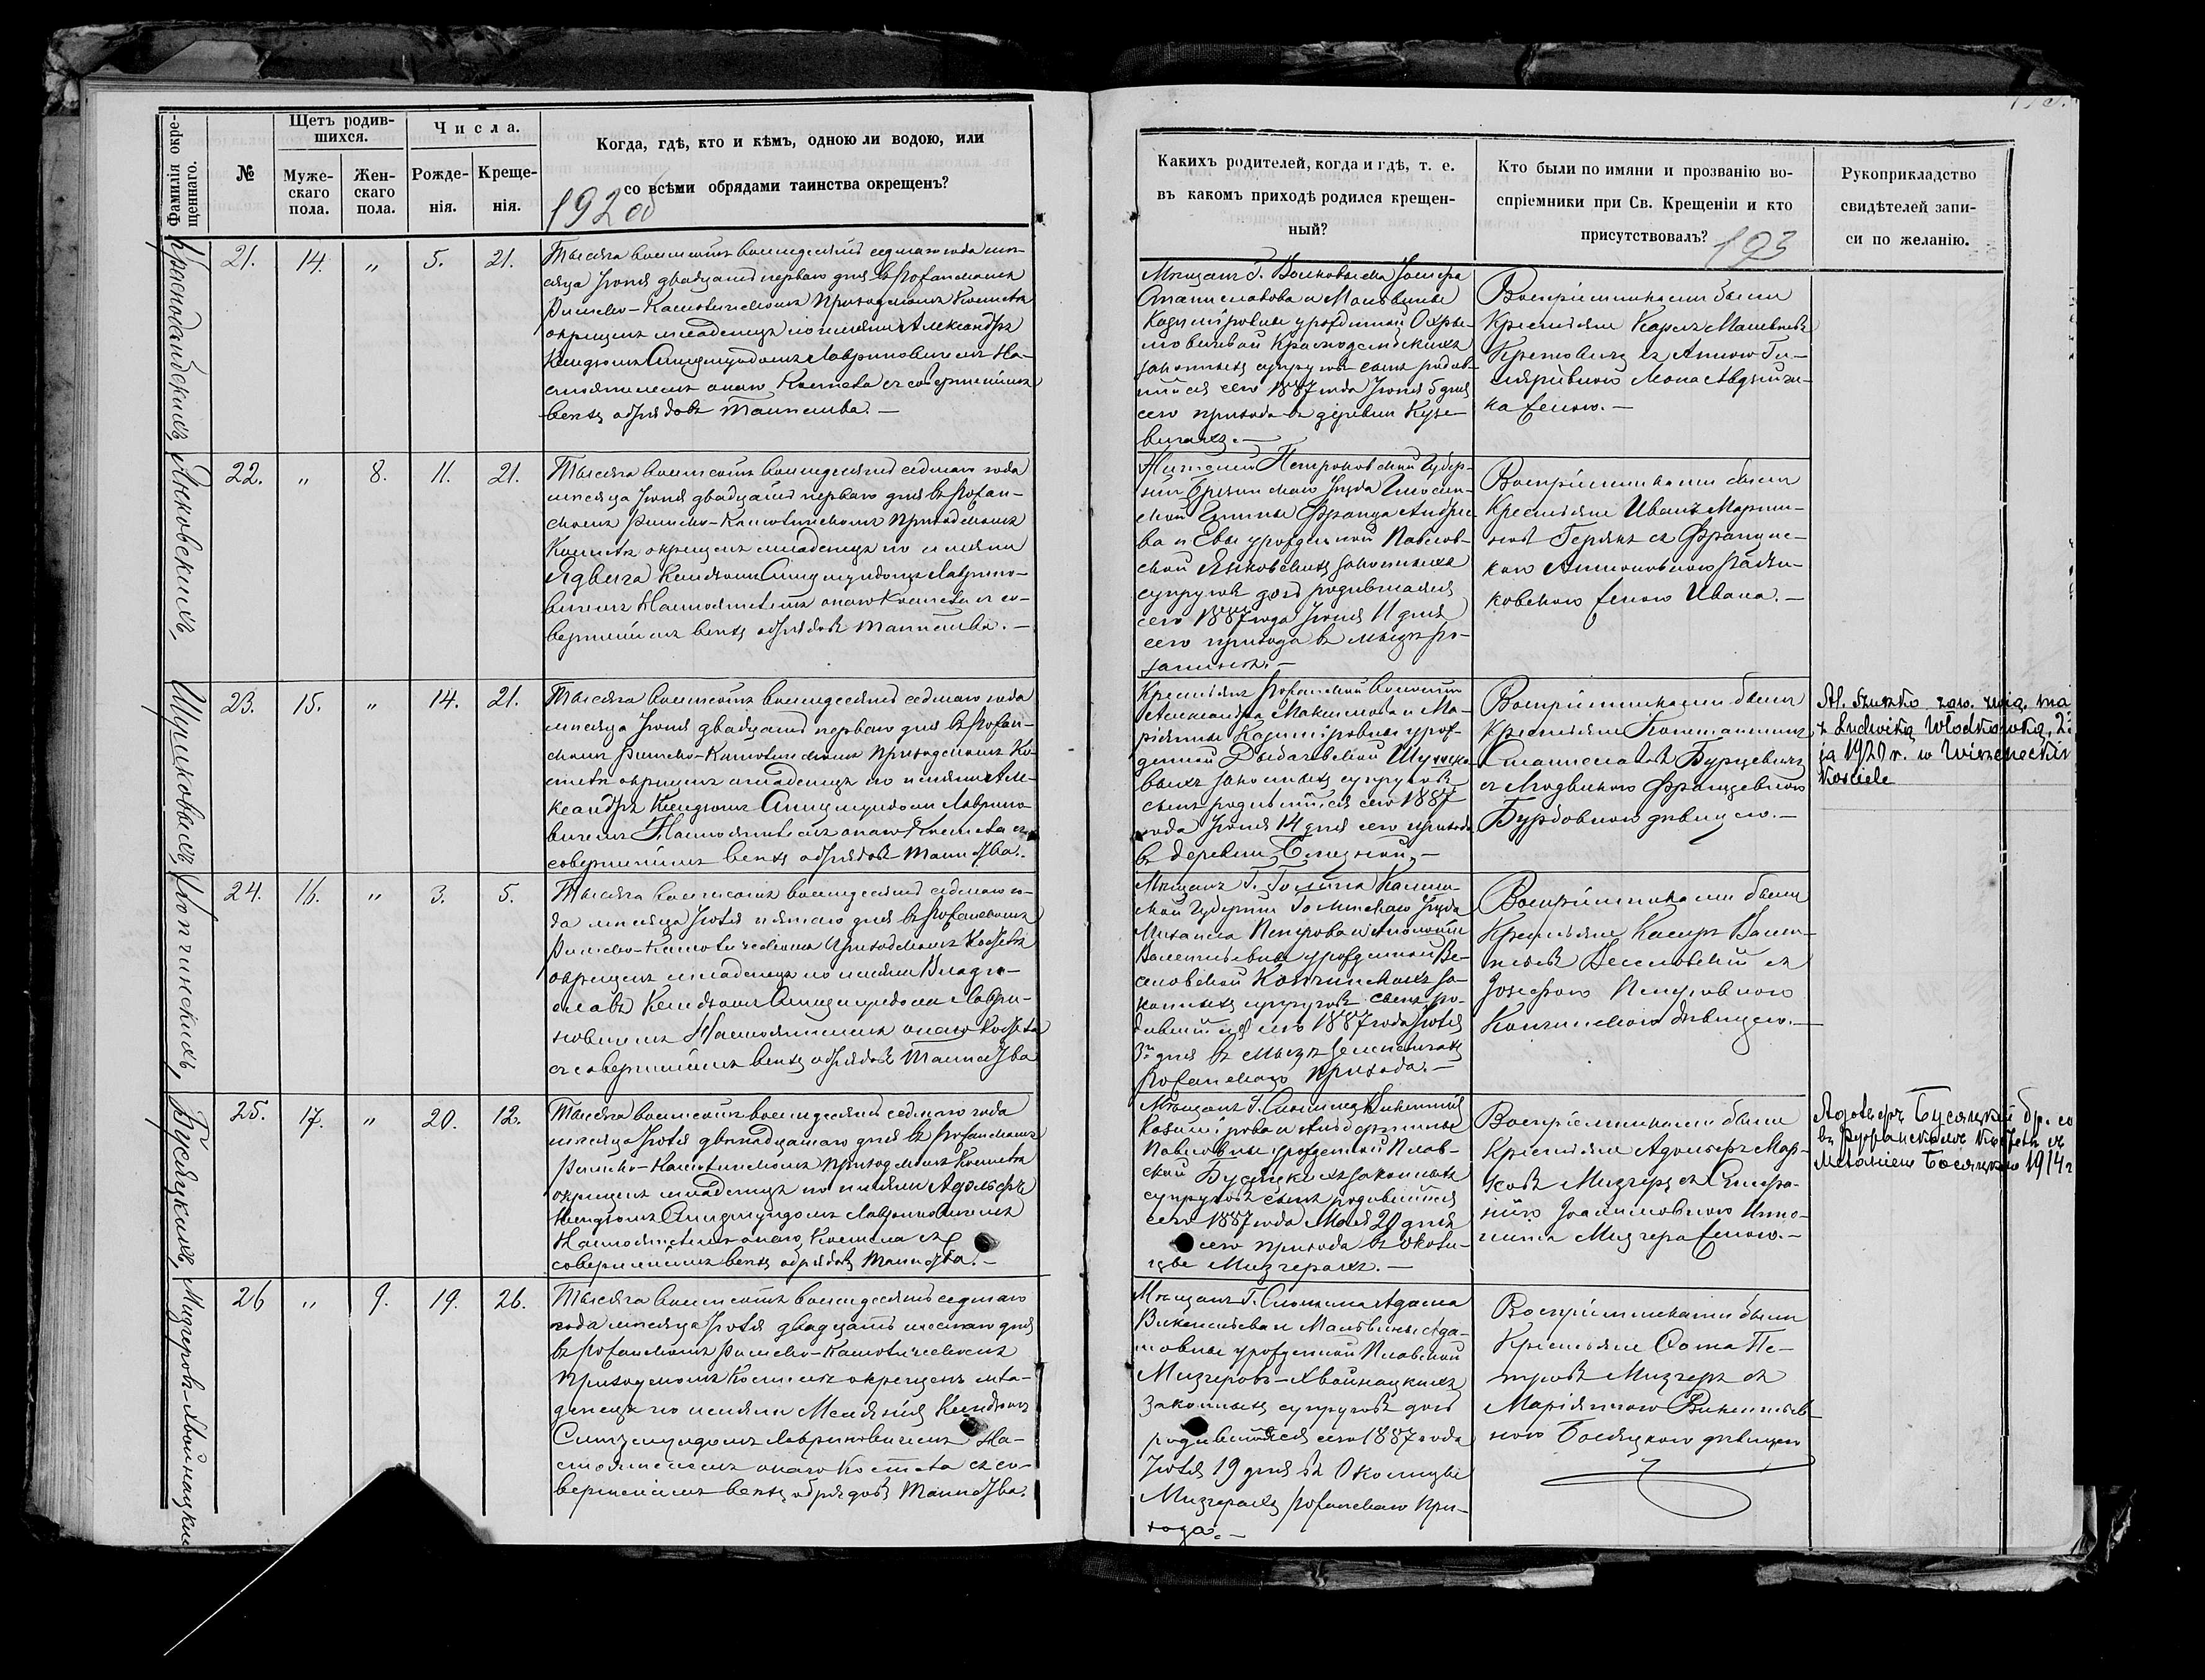 Фамилія окре-
щеннаго.
№
Щетъ родив-
шихся.
Муже-
скаго
пола.
Жен-
скаго
пола.
Числа.
Рожде-
нія.
Креще-
нія.
Когда, гдѣ, кто и кѣмъ, одною ли водою, или
со всѣми обрядами таинства окрещенъ?
192 об
Краснодембскихъ
21.
14.
"
5.
21.
Тысяча восемьсотъ восемдесятъ седмаго года мѣ-
сяца Іюня двадцать перваго дня въ Рожанскомъ
Римско-Католическомъ Приходскомъ Костелѣ
окрещенъ младенецъ по имени Александръ
Ксендзомъ Сигизмундомъ Лавриновичемъ На-
стоятелемъ онаго Костела съ совершеніемъ
всѣхъ обрядовъ Таинства.—
Янковскихъ.
22.
"
8.
11.
21.
Тысяча восемьсотъ восемдесятъ седмаго года
мѣсяца Іюня двадцать перваго дня въ Рожан-
скомъ Римско-Католическомъ Приходскомъ
Костелѣ окрещенъ младенецъ по имени
Ядвига Ксендзомъ Сигизмундомъ Лаврино-
вичемъ Настоятелемъ онаго Костела съ со-
вершеніемъ всѣхъ обрядовъ Таинства.—
Шушковыхъ,
23.
15.
"
14.
21.
Тысяча восемьсотъ восемдесятъ седмаго года
мѣсяца Іюня двадцать перваго дня въ Рожан-
скомъ Римско-Католическомъ Приходскомъ Ко-
стелѣ окрещенъ младенецъ по имени Але-
ксандръ Ксендзомъ Сигизмундомъ Лаврино-
вичемъ Настоятелемъ онаго Костела съ
совершеніемъ всѣхъ обрядовъ Таинства.
Копчинскихъ,
24.
16.
"
3.
5.
Тысяча восемьсотъ восемдесятъ седмаго го-
да мѣсяца Іюля пятаго дня въ Рожанскомъ
Римско-Католическомъ Приходскомъ Костелѣ
окрещенъ младенецъ по имени Влади-
славъ Ксендзомъ Сигизмундомъ Лаври-
новичемъ Настоятелемъ онаго Костела
съ совершеніемъ всѣхъ обрядовъ Таинства
Бусяцкихъ,
25.
17.
"
20.
12.
Тысяча восемьсотъ восемдесятъ седмаго года
мѣсяца Іюля двенадцатаго дня въ Рожанскомъ
Римско-Католическомъ Приходскомъ Костелѣ
окрещенъ младенецъ по имени Адольфъ
Ксендзомъ Сигизмундомъ Лавриновичемъ
Настоятелемъ онаго Костела съ
совершеніемъ всѣхъ обрядовъ Таинства.—
Мизгеровъ-Хвойнацкихъ
26
"
9.
19.
26.
Тысяча восемьсотъ восемдесятъ седмаго
года мѣсяца Іюля двадцать шестаго дня
въ Рожанскомъ Римско-Католическомъ
Приходскомъ Костелѣ окрещенъ мла-
денецъ по имени Меланія Ксендзомъ
Сигизмундомъ Лавриновичемъ На-
стоятелемъ онаго Костела съ со-
вершеніемъ всѣхъ обрядовъ Таинства.
Какихъ родителей, когда и гдѣ, т. е.
въ какомъ приходѣ родился крещен-
ный?
Кто были по имяни и прозванію во-
спріемники при Св. Крещеніи и кто
присутствовалъ?
193
Рукоприкладство
свидѣтелей запи-
си по желанію.
Мѣщанъ Г. Волковыска Іосифа
Станиславова и Мальвины
Казиміровны урожденной
Краснодембскихъ
законныхъ супруговъ сынъ родив-
шійся сего 1887 года Іюня 5 дня
сего прихода въ деревни Кузе-
вичахъ.—
Воспріемниками были
Крестьяне Карлъ Матвѣевъ
съ Анною
женою.—
Жителей Петроковской Губер-
ніи Брезинскаго Уѣзда
Гмины Франца Андрее
ва и Евы урожденной Павлов-
ской Янковскихъ законныхъ
супруговъ дочь родившаяся
сего 1887 года Іюня 11 дня
сего прихода въ мызѣ
Воспріемниками были
Крестьяне Иванъ Марти-
новъ съ Францис-
кою Антоновною
женою Ивана.—
Крестьянъ Рожанской волости
Александра Максимова и Ма-
ріянны Казиміровны урож-
денной Шушко-
выхъ законныхъ супруговъ
сынъ родившійся сего 1887
года Іюня 14 дня сего прихода
въ деревни Близной.—
Воспріемниками были
Крестьяне Константинъ
Станиславовъ Бурцевичъ
съ Людвикою Францевною
Бурдовною дѣвицею.—
Al. Szuszko zaw. zwią. ma
z Ludwiką Włodkowską,
ja 1920 r. w
Kościele
Мѣщанъ Г. Голина Калиш-
ской Губерніи Уѣзда
Михаила Петрова и Аполоніи
Валентьевны урожденной Ве-
селовской Копчинскихъ за-
конныхъ супруговъ сынъ ро-
дившійся сего 1887 года Іюля
3го дня въ мызѣ
Рожанскаго Прихода.—
Воспріемниками были
Крестьяне Каспръ Вален-
тьевъ Веселовскій съ
Іозефою Петровною
Копчинскою дѣвицею.—
Мѣщанъ Г. Слонима Викентія
Казимірова и
Павловны урожденной Плав-
ской Бусяцкихъ законныхъ
супруговъ сынъ родившійся
сего 1887 года Мая 20 дня
сего прихода въ околи-
цѣ Мизгерахъ.—
Воспріемниками были
Крестьяне Адольфъ Мар-
ковъ Мизгеръ съ Стефа-
ніею Іоахимовною
Мизгера женою.—
Адольфъ Бусяцкій бр. со
въ Рожанскомъ Костелѣ съ
Меланіею Босяцкою 1914 г
Мѣщанъ Г. Слонима Адама
Викентьева и Мальвины Ада-
мовны урожденной Плавской
Мизгеровъ-Хвойнацкихъ
законныхъ супруговъ дочь
родившаяся сего 1887 года
Іюля 19 дня въ Околицѣ
Мизгерахъ Рожанскаго При-
хода.—
Воспріемниками были
Крестьяне Ѳома Пе-
тровъ Мизгеръ съ
Маріянною Викентьев-
ною Босяцкою дѣвицею